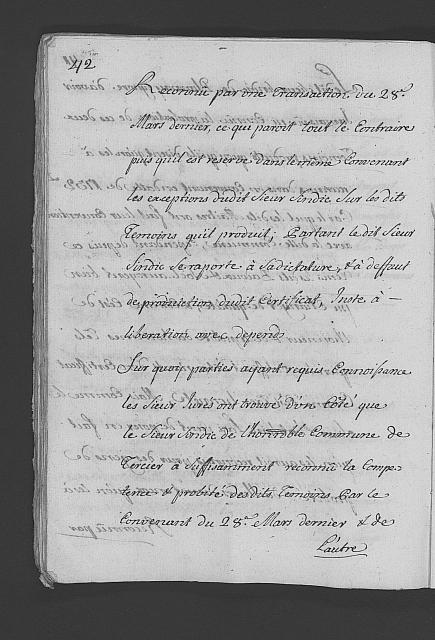 42
Reconnu par une Transaction du 28.e
Mars dernier, ce qui paroit tout le Contraire
puis quil est reservé dans le même Convenant
les exceptions dudit Sieur Sindic Sur les dits
Temoins quil produit; Partant le dit Sieur
Sindic Se raporte à Sa dictature, & à deffaut
de production dudit Certificat, Inste à —
liberation avec depends
Sur quoy parties ayant requis Connoissance
les Sieur Jures ont trouvé d'un Côté que
le Sieur Sindic de l'honnorable Commune de
Tercier à Suffisamment reconnu la Compe
tence & probité desdits Temoins Par le
Convenant du 28.e Mars dernier & de
L'autre